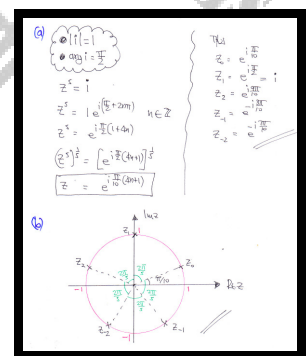 (a)
• |i|=1
• arg i = π/2
z⁵ = i
z⁵ = 1 e^{i(π/2+2nπ)} n∈ℤ
z⁵ = e^{iπ/2(1+4n)}
(z⁵)^{1/5} = [e^{iπ/2(4n+1)}]^{1/5}
z = e^{iπ/10(4n+1)}
THUS
z₀ = e^{iπ/10}
z₁ = e^{iπ/2} = i
z₂ = e^{i9π/10}
z₋₁ = e^{-i3π/10}
z₋₂ = e^{-i7π/10}
(b)
Im z
z₁ 1
z₂ 2π/5 2π/5 z₀
π/10
-1 2π/5 2π/5 1 Re z
2π/5
z₋₂ z₋₁
-1